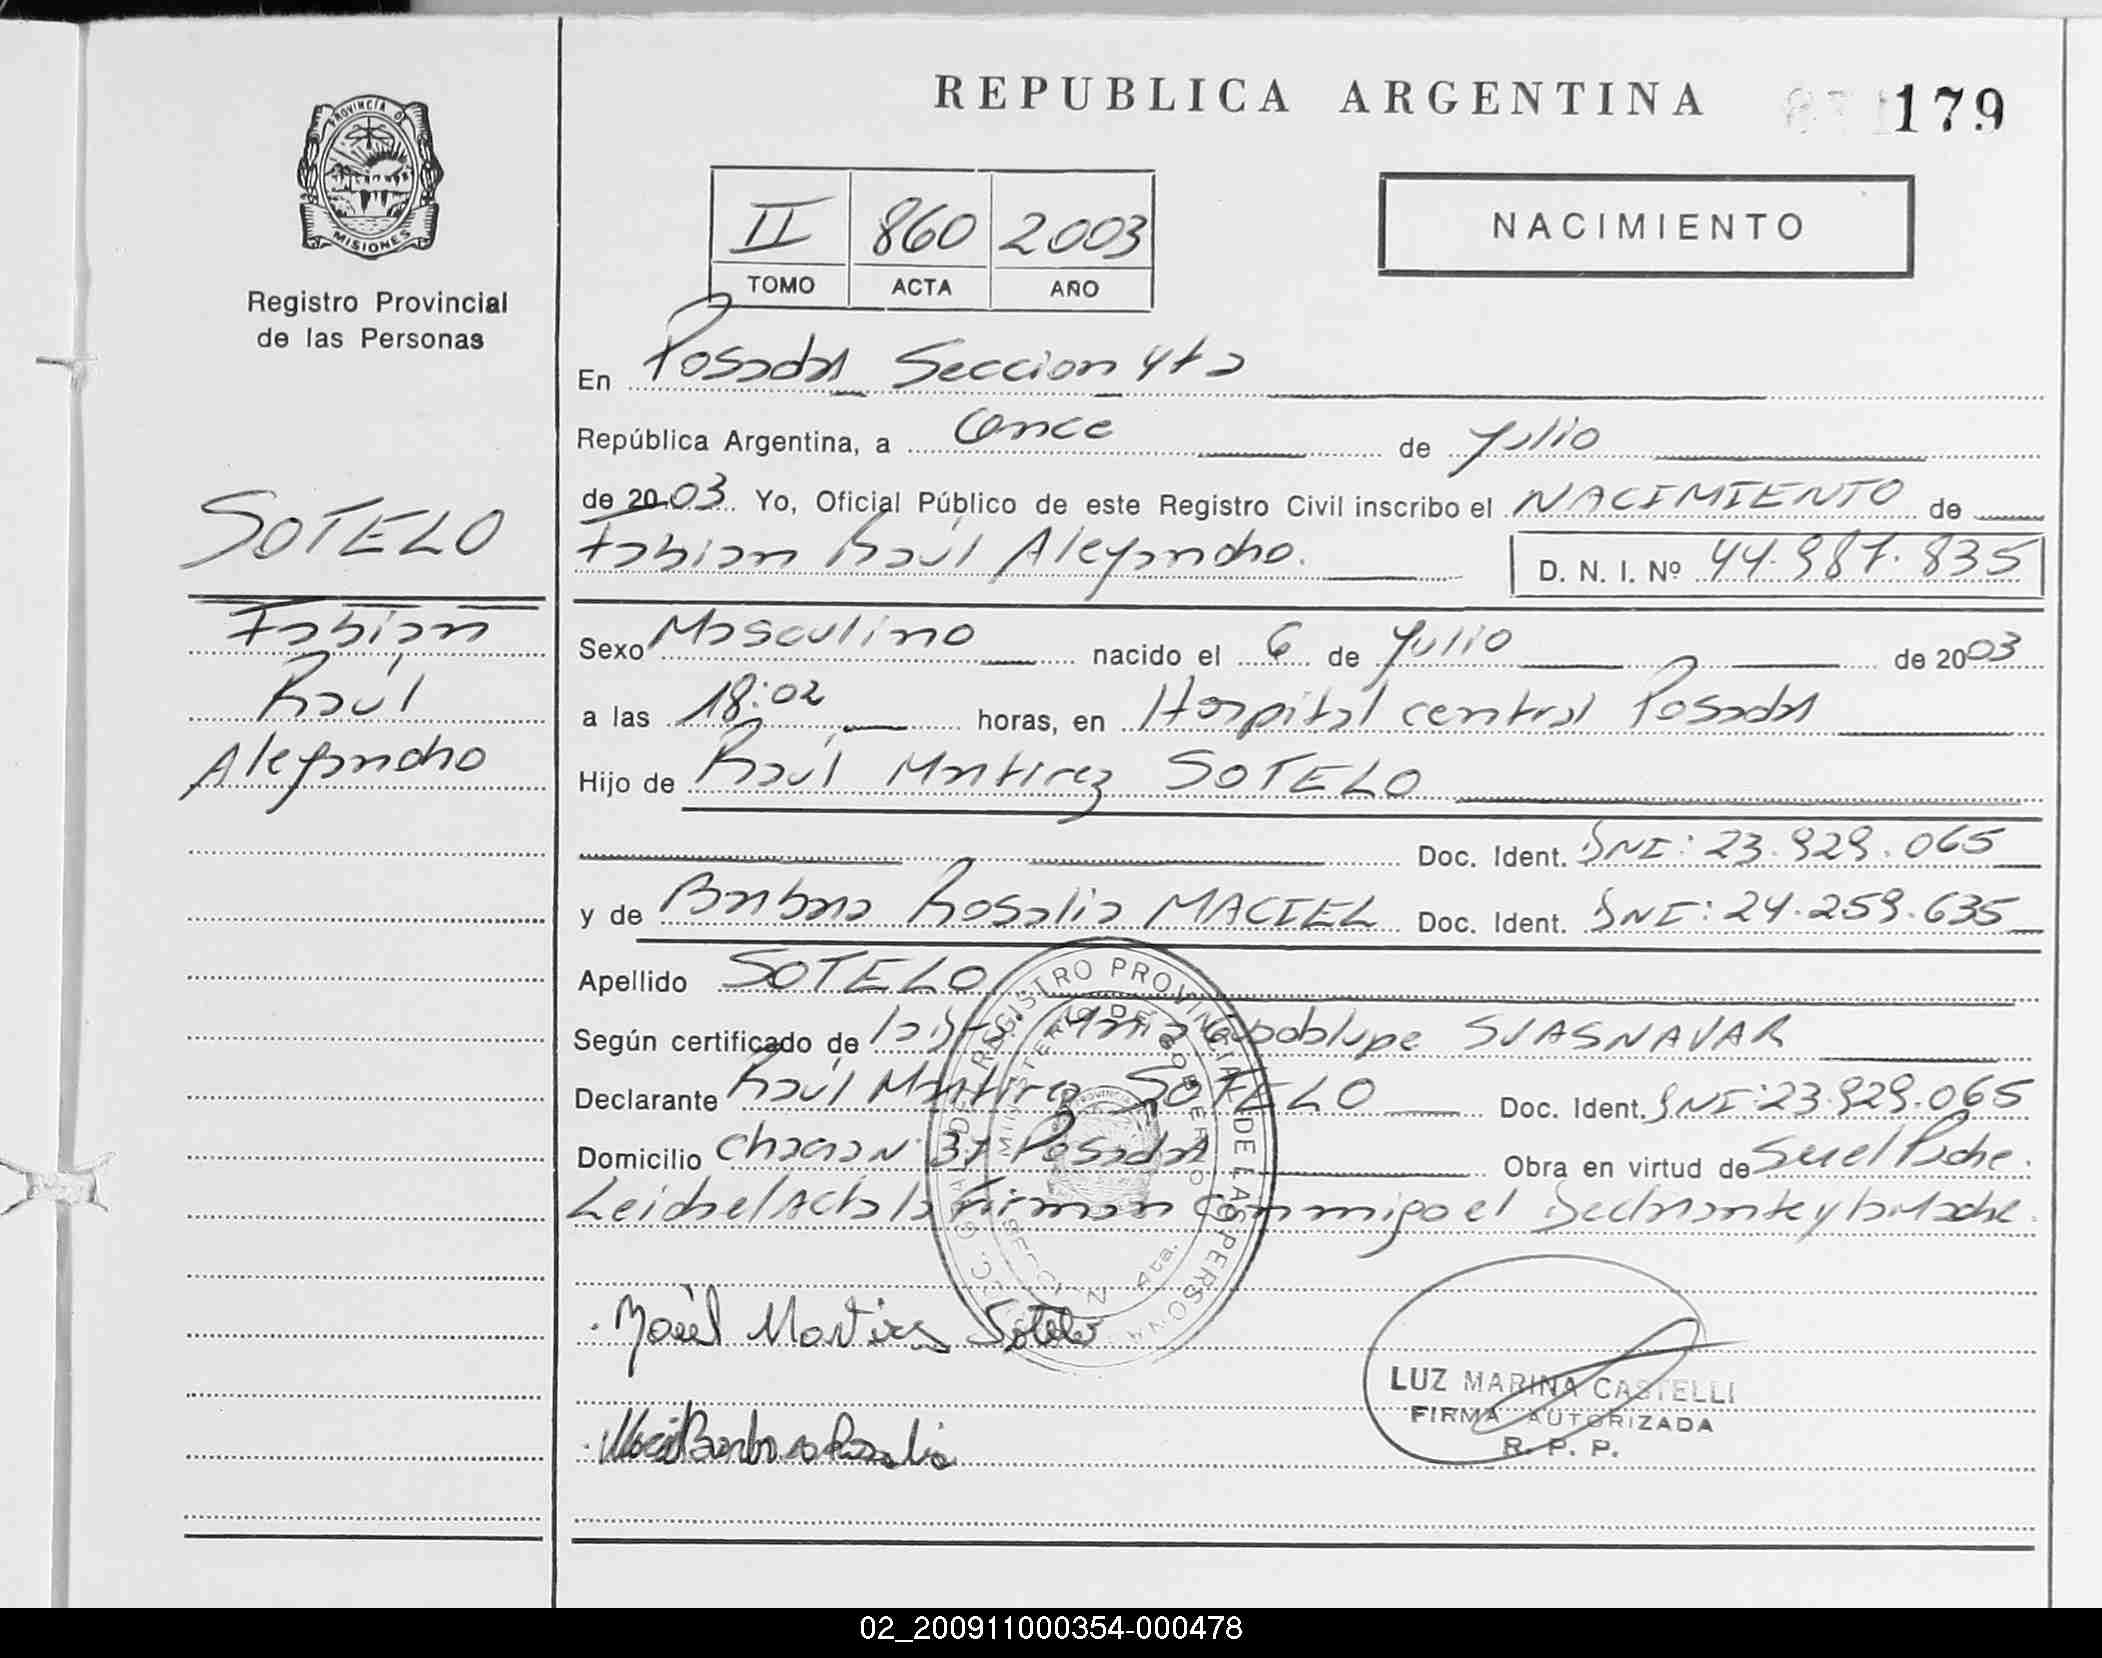 REPUBLICA ARGENTINA
179
PROVINCIA DE
MISIONES
Registro Provincial
de las Personas
II 860 2003
TOMO ACTA AÑO
NACIMIENTO
En Posadas Seccion 4ta
República Argentina, a Once de Julio
de 2003 Yo, Oficial Público de este Registro Civil inscribo el NACIMIENTO de
Fabian Raúl Alejandro. D. N. I. Nº 44.987.835
SOTELO
Fabian
Raúl
Alejandro
Sexo Masculino nacido el 6 de Julio de 2003
a las 18:02 horas, en Hospital central Posadas
Hijo de Raúl Martirez SOTELO
Doc. Ident. DNI: 23.929.065
y de Barbara Rosalia MACIEL Doc. Ident. DNI: 24.259.635
Apellido SOTELO
Según certificado de la Maria Guadalupe SUASNAVAR
Declarante Raúl Martirez SOTELO Doc. Ident. DNI: 23.929.065
Domicilio Chacra N: 31 Posadas Obra en virtud de Ser el Padre.
Leida el Acta la Firman Conmigo el Declarante y la Madre.
REGISTRO PROVINCIAL DE LAS PERSONAS
MINISTERIO DE GOBIERNO
SECCION 4ta.
Raúl Martirez Sotelo
Maciel Barbara Rosalia
LUZ MARINA CASTELLI
FIRMA AUTORIZADA
R. P. P.
02_200911000354-000478